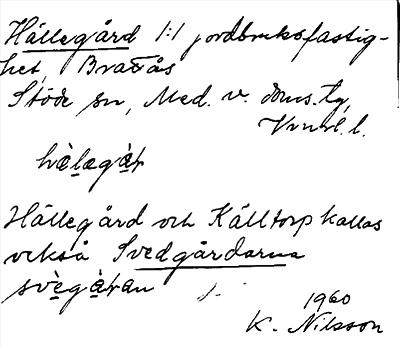 Hällegård 1:1 jordbruksfastig-
het, Brattås
Stöde sn, Med. v. doms. tg,
hälagàṭ
Hällegård och Källtorp kallas
också Svedgårdarna
svègàṭan
1960
K. Nilsson